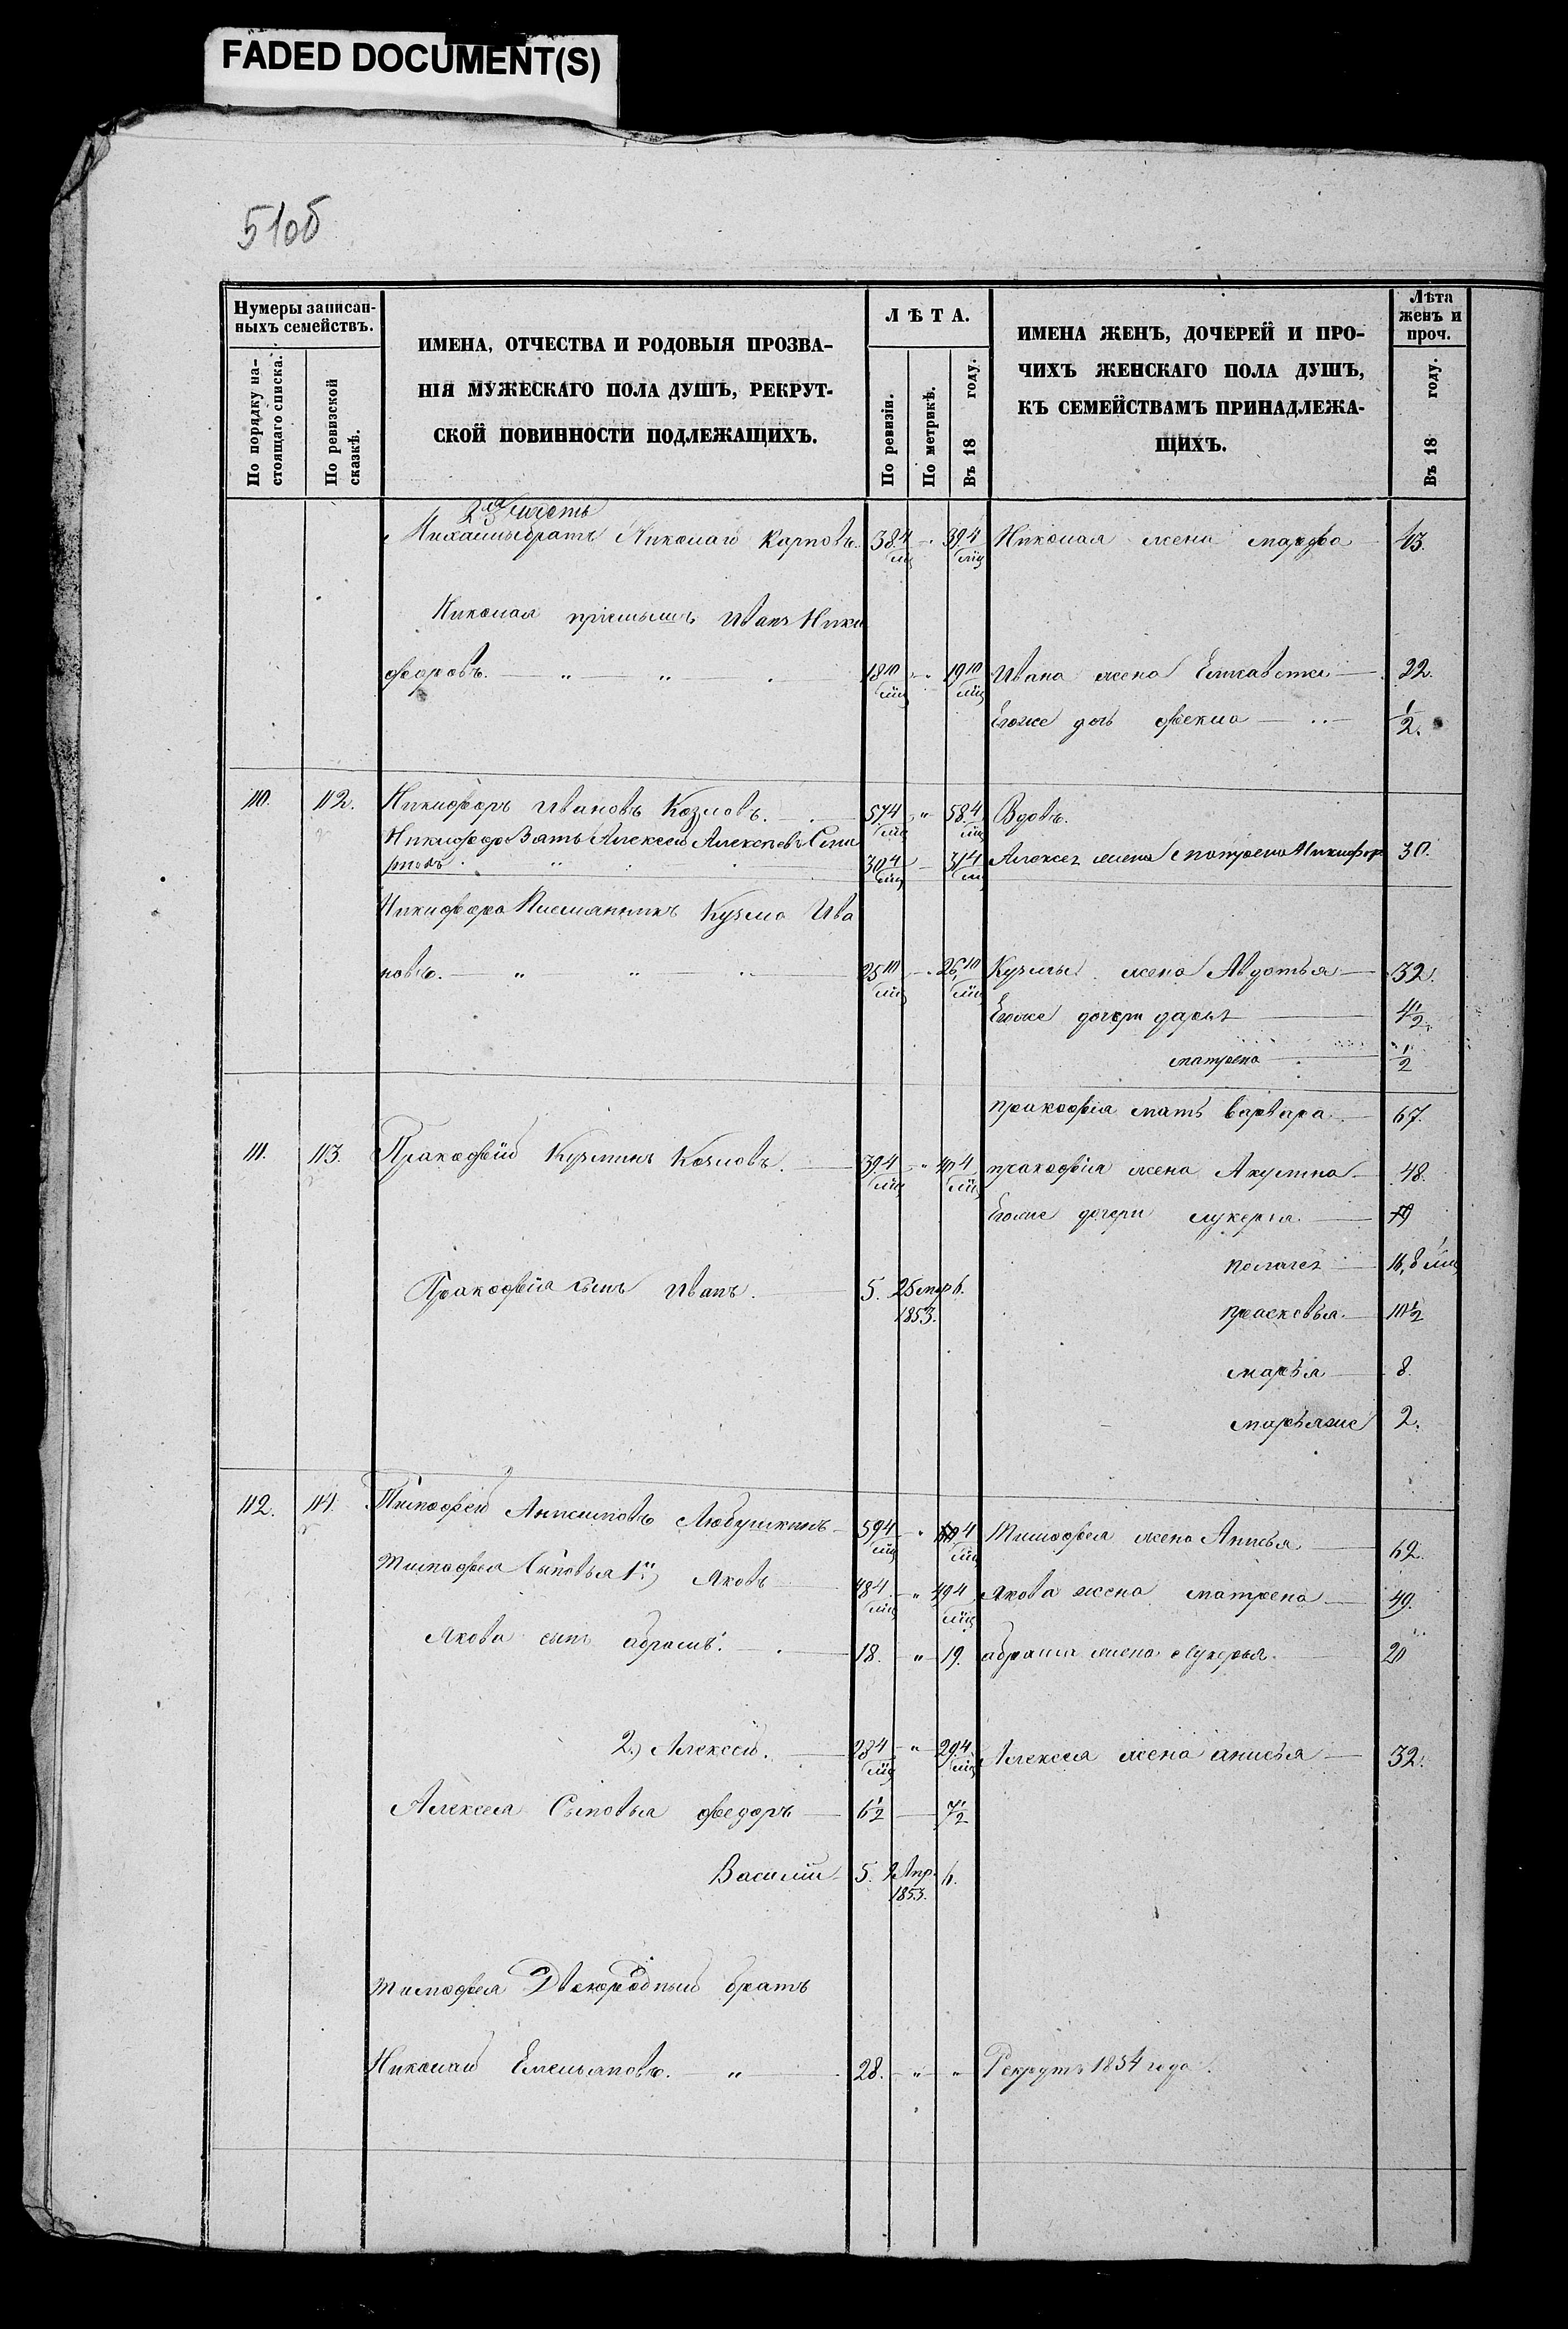 FADED DOCUMENT(S)
51об
Нумеры записан-
ныхъ семействъ.
По порядку на-
стоящаго списка.
По ревизской
сказкѣ.
ИМЕНА, ОТЧЕСТВА И РОДОВЫЯ ПРОЗВА-
НІЯ МУЖЕСКАГО ПОЛА ДУШЪ, РЕКРУТ-
СКОЙ ПОВИННОСТИ ПОДЛЕЖАЩИХЪ.
ЛѢТА.
По ревизіи.
По метрикѣ.
Въ 18 году.
ИМЕНА ЖЕНЪ, ДОЧЕРЕЙ И ПРО-
ЧИХЪ ЖЕНСКАГО ПОЛА ДУШЪ,
КЪ СЕМЕЙСТВАМЪ ПРИНАДЛЕЖА-
ЩИХЪ.
Лѣта
женъ и
проч.
Въ 18 году.
2я часть
братъ Николай Карповъ. 38. 4/мц " 39. 4/мц Николая жена марфа 43.
Николая пріемышъ Иванъ Ники
форовъ. " " 18 10/мц " 19 10/мц Ивана жена Елисавета 22.
Егоже дочь фекла 1/2.
110. 112. Никифоръ Ивановъ Козловъ. 57. 4/мц " 58. 4/мц Вдовъ.
Никифора Зять Алексей Алексеевъ
30 4/мц 31 4/мц Алексея жена матрена Никифор 30.
Никифора Племянникъ Кузма Ива
новъ. " " 25 10/мц " 26 10/мц Кузмы жена Авдотья 32.
Егоже дочери дарья 4 1/2
матрена 1/2
пракофія мать варвара 67.
111. 113. Пракофій Кузминъ Козловъ. 39. 4/мц " 40 4/мц пракофія жена Акулина 48.
Егоже дочери лукерья. 19
Пракофія сынъ Иванъ. 5. 25 мар 6.
1853.
пелагея 16, 8 мц
прасковья. 10 1/2
марья 8.
марьяже 2.
112. 114. Тимофей Анисимовъ Любушкинъ 59 4/мц " 60 4/мц Тимофея жена Анисья 62.
Тимофея Сыновья 1й) Яковъ 48 4/мц " 49 4/мц Якова жена матрена 49.
Якова сынъ абрамъ. 18. " 19. абрама жена лукерья. 20
2.) Алексей. 28 4/мц " 29. 4/мц Алексея жена анисья 32.
Алексея Сыновья федоръ 6 1/2 7 1/2
Василій 5. 2 Апр. 6.
1853.
тимофея Двоюродный братъ
Николай Емельяновъ. " 28. " " Рекрутъ 1854 года.